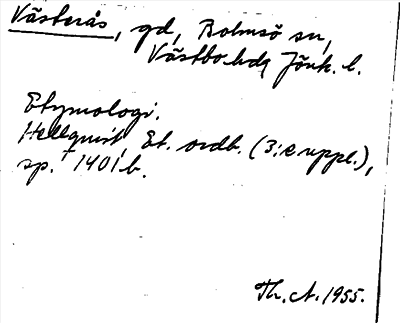 Västerås, gd, Bolmsö sn,
Västbo hd, Jönk. l.
Etymologi.
Hellquist, Et. ordb. (3:e uppl.),
sp. 1401 b.
Th. A. 1955.